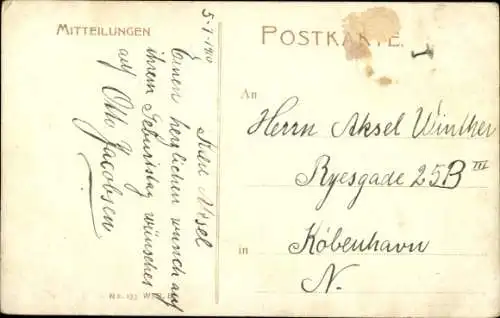 MITTEILUNGEN
5-7-1910
Kære Aksel
Einen herzlichen wunsch auf
ihrem Geburtstag wünsches
auf Otto Jacobsen
POSTKARTE
An
Herrn Aksel Winther
Ryesgade 25B III
in København
N.